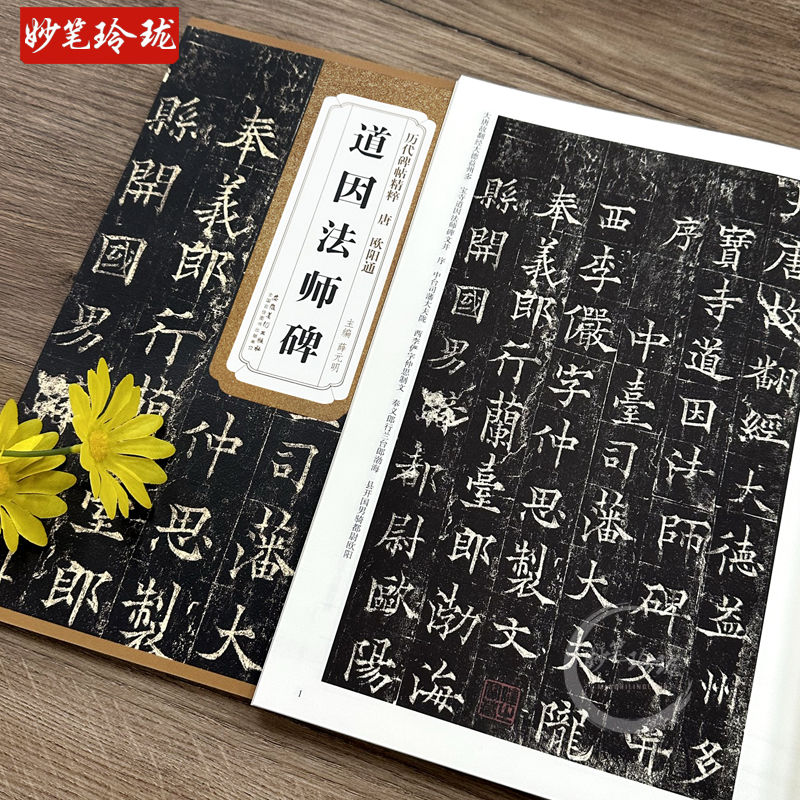 妙笔玲珑
历代碑帖精粹 唐 欧阳通
道因法师碑
主编 薛元明
奉義郎行蘭臺郎
縣開國男
司藩大
仲思製
大唐故翻经大德益州多 宝寺道因法师碑文并 序 中台司藩大夫陇 西李俨字仲思制文 奉义郎行兰台郎渤海 县开国男骑都尉欧阳
大唐故翻經大德益州多
寶寺道因法師碑文并
序
中臺司藩大夫隴
西李儼字仲思製文
奉義郎行蘭臺郎渤海
縣開國男騎都尉歐陽
1
妙笔玲珑